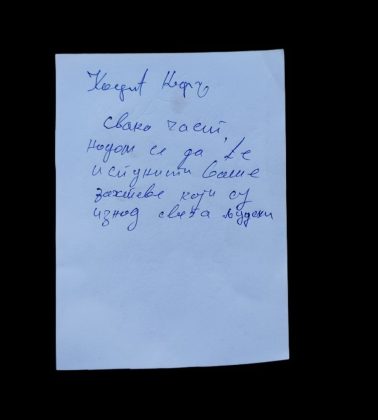 свака част,
надам се да ће
испунити ваше
захтеве који су
изнад свега људски